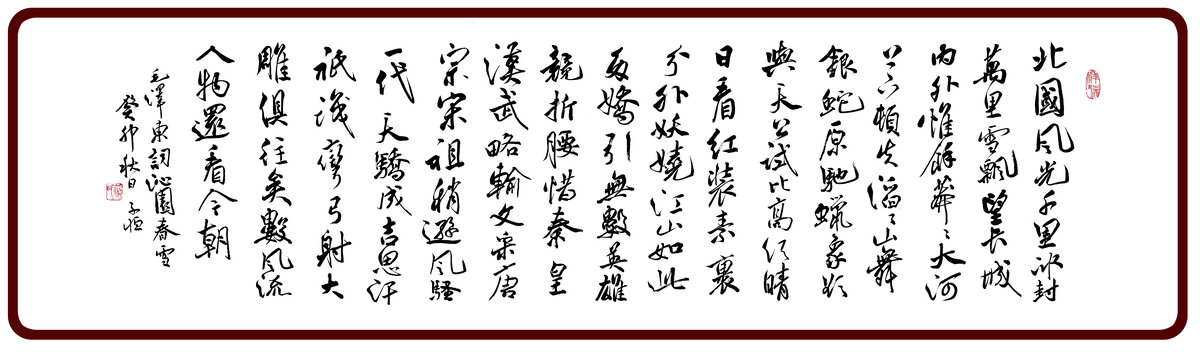 北國風光千里冰封
萬里雪飄望長城
内外惟餘莽〻大河
上下頓失滔〻山舞
銀蛇原馳蠟象欲
與天公試比高須晴
日看紅裝素裹
分外妖嬈江山如此
多嬌引無數英雄
競折腰惜秦皇
漢武略輸文采唐
宗宋祖稍遜風騷
一代天驕成吉思汗
祇識彎弓射大
雕俱往矣數風流
人物還看今朝
毛澤東詞沁園春雪
癸卯秋日子恒